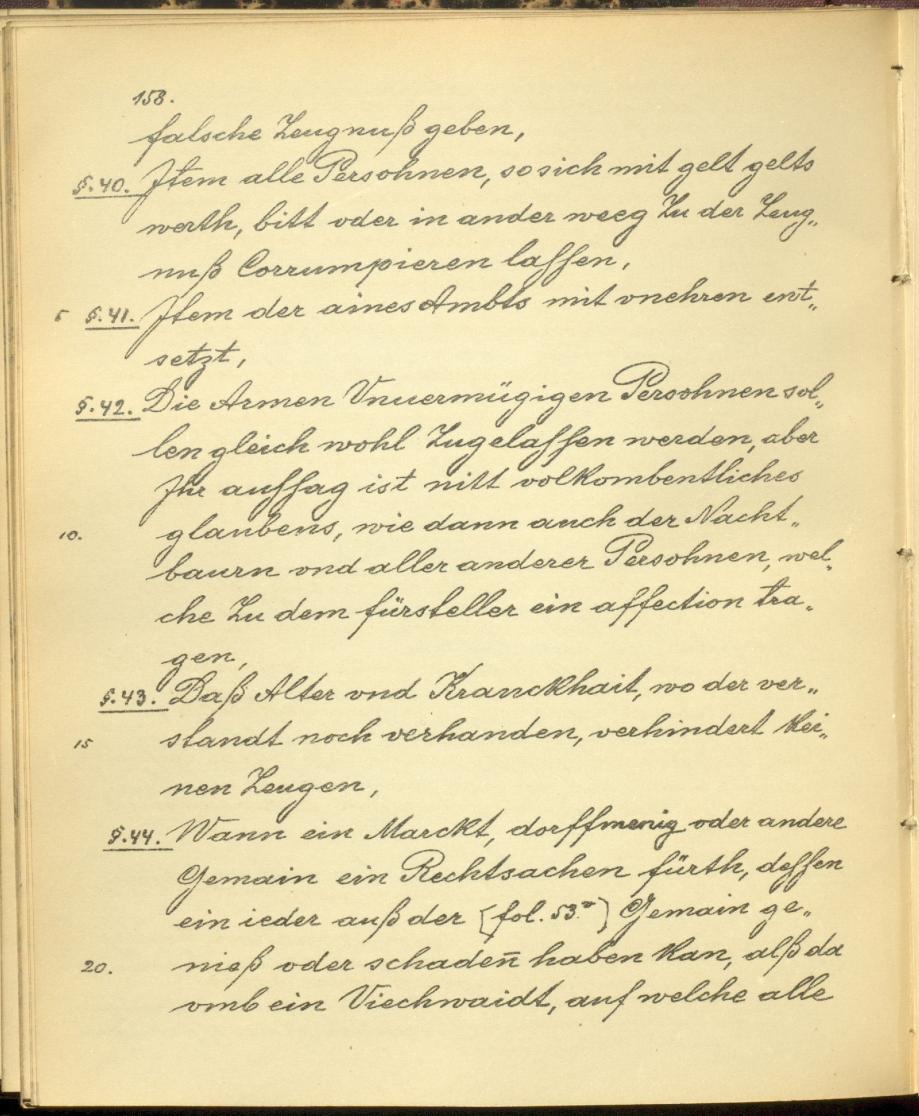 158.
falsche Zeugnuß geben,
§.40. Item alle Persohnen, so sich mit gelt gelts
werth, bitt oder in ander weeg Zu der Zeug„
nuß Corrumpieren lassen,
5 §.41. Item der aines Ambts mit vnehren ent„
setzt,
§.42. Die Armen Vnuermügigen Persohnen sol„
len gleich wohl Zugelassen werden, aber
Ihr aussag ist nitt volkombentliches
10. glaubens, wie dann auch der Nacht„
baurn vnd aller anderer Persohnen, wel„
che Zu dem fürsteller ein affection tra„
gen,
§.43. Daß Alter vnd Kranckhait, wo der ver„
15 standt noch verhanden, verhindert kei„
nen Zeugen,
§.44. Wann ein Marckt, dorffmenig oder andere
Gemain ein Rechtsachen fürth, dessen
ein ieder auß der [fol. 53.] Gemain ge„
20. nieß oder schadeñ haben kan, alß da
vmb ein Viechwaidt, auf welche alle